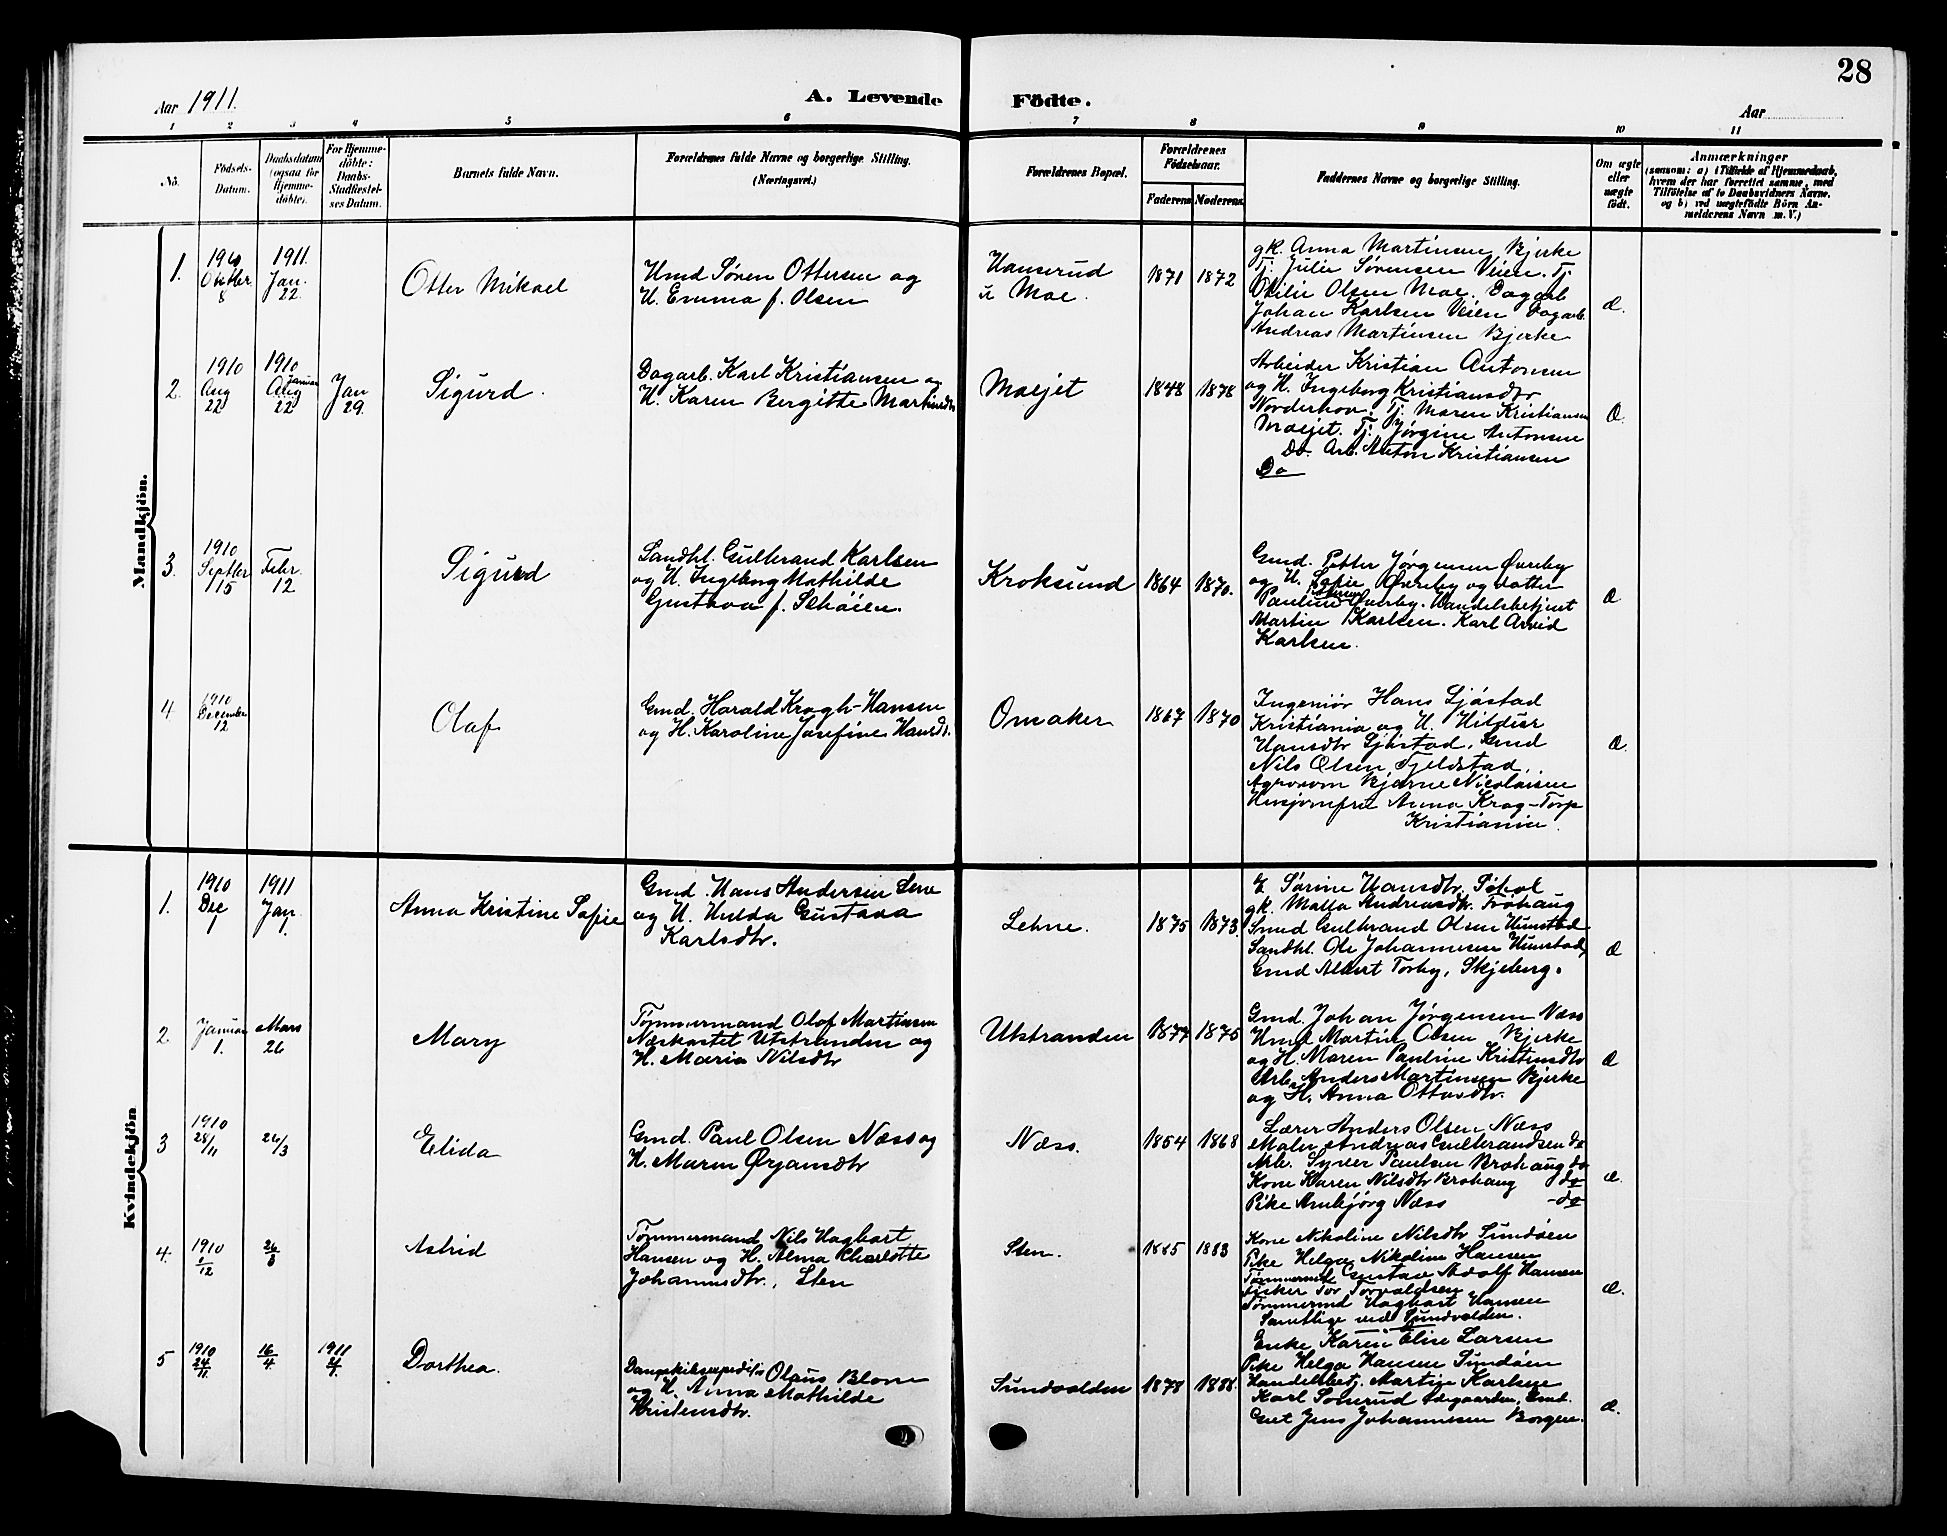 28
Aar 1911.
A. Levende Födte.
Aar
1 2 3 4 5 6 7 8 9 10 11
No.
Födsels-
Datum.
Daabsdatum
(ogsaa for
Hjemme-
döbte).
For Hjemme-
döbte:
Daabs-
Stadfæstel-
ses Datum.
Barnets fulde Navn.
Forældrenes fulde Navne og borgerlige Stilling.
(Næringsvei.)
Forældrenes Bopæl.
Forældrenes
Födselsaar.
Faderens Moderens
Faddernes Navne og borgerlige Stilling.
Om ægte
eller
uægte
födt.
Anmærkninger
(saasom: a) i Tilfælde af Hjemmedaab,
hvem der har forrettet samme, med
Tilföielse af to Daabsvidners Navne,
og b) ved uægtefödte Börn An-
melderens Navn m. V.)
Mandkjön.
1.
1910
Oktbr.
8
1911.
Jan.
22.
Otter Mikael
Hmd Søren Ottersen og
H. Emma f. Olsen
Hanserud
u Moe.
1871 1872
gk. Anna Martinsen Bjerke
Tj. Julie Sørensen Veien. Tj
Otilie Olsen Moe. Dagarb
Johan Karlsen Veien Dagarb.
Andreas Martinsen Bjerke
Æ.
2.
1910
Aug
22
1910
Aug
Januar
22
Jan
29.
Sigurd.
Dagarb. Karl Kristiansen og
H. Karen Bergitte Martinsdtr
Moejet
1848 1878
Arbeider Kristian Antonsen
og H. Ingeborg Kristiansdtr
Norderhov. Tj. Maren Kristiansen
Moejet. Tj. Jørgine Antonsen
Do. Arb. Anton Kristiansen
Do
Æ.
3.
1910
Septbr
15
Febr.
12
Sigurd
Landhl. Gulbrand Karlsen
og H. Ingeborg Mathilde
Gustava f. Schøien.
Kroksund
1864 1870.
Gmd. Petter Jørgensen Øverby
og H. Sofie Øverby og datter
Pauline Pettersen Øverby. Handelsbetjent
Martin Karlsen. Karl Arvid
Karlsen.
Æ
4
1910
December
12
Olaf
Gmd. Harald Krogh-Hansen
og H. Karoline Josefine Hansdtr.
Onsaker
1867 1870
Ingeniør Hans Sjøstad
Kristiania og H. Hildur
Hansdtr Sjøstad. Gmd
Nils Olsen Fjeldstad.
Agronom Bjarne Nicolaisen
Husjomfru Anna Krag-Torp
Kristiania.
Æ.
Kvindekjön
1.
1910
Dec
1911
Jan.
Anna Kristine Sofie
Gmd. Hans Andersen Lene
og H. Hulda Gustava
Karlsdtr.
Lehne.
1875 1873.
E Sørine Hansdtr. Søhol
gk. Malla Andreasdtr. Frøhaug
Smed Gulbrand Olsen Hunstad
Landhl. Ole Johannesen Hunstad
Gmd Albert Torby, Skjeberg.
Æ
2.
Januar
1.
Mars
26
Mary
Tømmermand Olof Martinsen
Næskastet Utstranden og
H. Maria Nilsdtr
Utstranden
1877 1875
Gmd. Johan Jørgensen Næss
Hmd Martin Olsen Bjerke
og H. Maren Pauline Kristensdtr
Arb. Anders Martinsen Bjerke
og H. Anna Ottosdtr.
Æ
3
1910
28/11
26/3
Elida
Gmd. Paul Olsen Næss og
H. Maren Ørjansdtr
Næss.
1854 1868
Lærer Anders Olsen Næss
Maler Andreas Gulbrandsen do
Arb. Syver Paulsen Brohaug do
Kone Karen Nilsdtr Brohaug do
Pike Anbjørg Næss - do
Æ.
4.
1910
2/12
26/3
Astrid
Tømmermand Nils Hagbart
Hansen og H. Alma Charlotte
Johannesdtr., Sten
Sten.
1885 1883
Kone Nikoline Nilsdtr Sundøen
Pike Helga Nikoline Hansen
Tømmermd Gustav Adolf Hansen
Fisker Tor Torvaldsen
Tømmermd Hagbart Hansen
Samtlige ved Sundvolden.
Æ.
5
1910
24/11
16/4
1911
Dorthea.
Dampskibsexpeditør Olaus Blom
og H. Anna Mathilde
Kristensdtr.
Sundvolden
1878 1888.
Enke Karen Elise Larsen
Pike Helga Hansen Sundøen
Handelsbetj. Martin Karlsen
Karl Sonerud
Gut Jens Johannesen Borgen.
Æ.